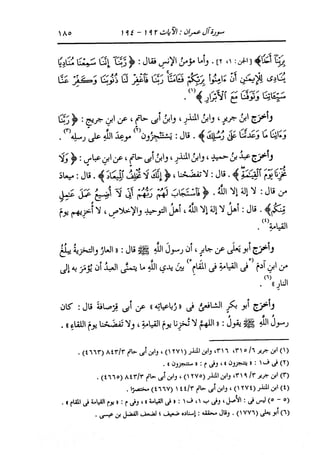 سورة آل عمران : الآيات ١٩٢ - ١٩٤ ١٨٥
بِرَبِّنَا أَحَدًا﴾ [الجن: ١، ٢]. وأما مؤمن الإنس فقال : ﴿رَّبَّنَا إِنَّنَا سَمِعْنَا مُنَادِيًا
يُنَادِى لِلْإِيمَٰنِ أَنْ ءَامِنُوا۟ بِرَبِّكُمْ فَـَٔامَنَّا رَبَّنَا فَٱغْفِرْ لَنَا ذُنُوبَنَا وَكَفِّرْ عَنَّا
سَيِّـَٔاتِنَا وَتَوَفَّنَا مَعَ ٱلْأَبْرَارِ﴾(١).
وأخرج ابنُ جريرٍ ، وابنُ المنذرِ ، وابنُ أبى حاتمٍ ، عن ابنِ جريجٍ : ﴿رَبَّنَا
وَءَاتِنَا مَا وَعَدتَّنَا عَلَىٰ رُسُلِكَ﴾ . قال : يستنجزون(٢) موعدَ اللهِ على رسلِه(٣).
وأخرج عبدُ بنُ حميدٍ ، وابنُ المنذرِ ، وابنُ أبى حاتمٍ ، عن ابنِ عباسٍ : ﴿وَلَا
تُخْزِنَا يَوْمَ ٱلْقِيَٰمَةِ﴾ . قال : لا تفضحنا ، ﴿إِنَّكَ لَا تُخْلِفُ ٱلْمِيعَادَ﴾ . قال : ميعادَ
من قال : لا إلهَ إلا اللهُ . ﴿فَٱسْتَجَابَ لَهُمْ رَبُّهُمْ أَنِّى لَآ أُضِيعُ عَمَلَ عَٰمِلٍ
مِّنكُم﴾ . قال : أهلُ لا إلهَ إلا اللهُ ، أهلُ التوحيدِ والإخلاصِ ، لا أخزيهم يومَ
القيامةِ(٤).
وأخرج أبو يعلى عن جابرٍ ، أن رسولَ اللهِ ﷺ قال : «العارُ والتخزيةُ يبلغُ
من ابنِ آدمَ (٥فى القيامةِ فى المقامِ٥) بينَ يدىِ اللهِ ما يتمنَّى العبدُ أن يُؤمَرَ به إلى
النارِ»(٦).
وأخرج أبو بكرٍ الشافعىُّ فى «رُباعياتِه» عن أبى قِرْصافةَ قال : كان
رسولُ اللهِ ﷺ يقولُ : «اللهمَّ لا تُخزِنا يومَ القيامةِ ، ولا تفضَحْنا يومَ اللقاءِ» .
(١) ابن جرير ٦/ ٣١٥، ٣١٦، وابن المنذر (١٢٧١) ، وابن أبى حاتم ٣/ ٨٤٣ (٤٦٦٣) .
(٢) فى ف ١ : «يتجزون» ، وفى م : «ستنجزون» .
(٣) ابن جرير ٦/ ٣١٩، وابن المنذر (١٢٧٥) ، وابن أبى حاتم ٣/ ٨٤٣ (٤٦٦٥) .
(٤) ابن المنذر (١٢٧٤) ، وابن أبى حاتم ٣/ ١٤٤ (٤٦٦٧) مختصرًا .
(٥ - ٥) ليس فى : الأصل ، وفى ب ١، ف ١ : «فى القيامة» ، وفى م : «يوم القيامة فى المقام» .
(٦) أبو يعلى (١٧٧٦) . وقال محققه : إسناده ضعيف ؛ لضعف الفضل بن عيسى .